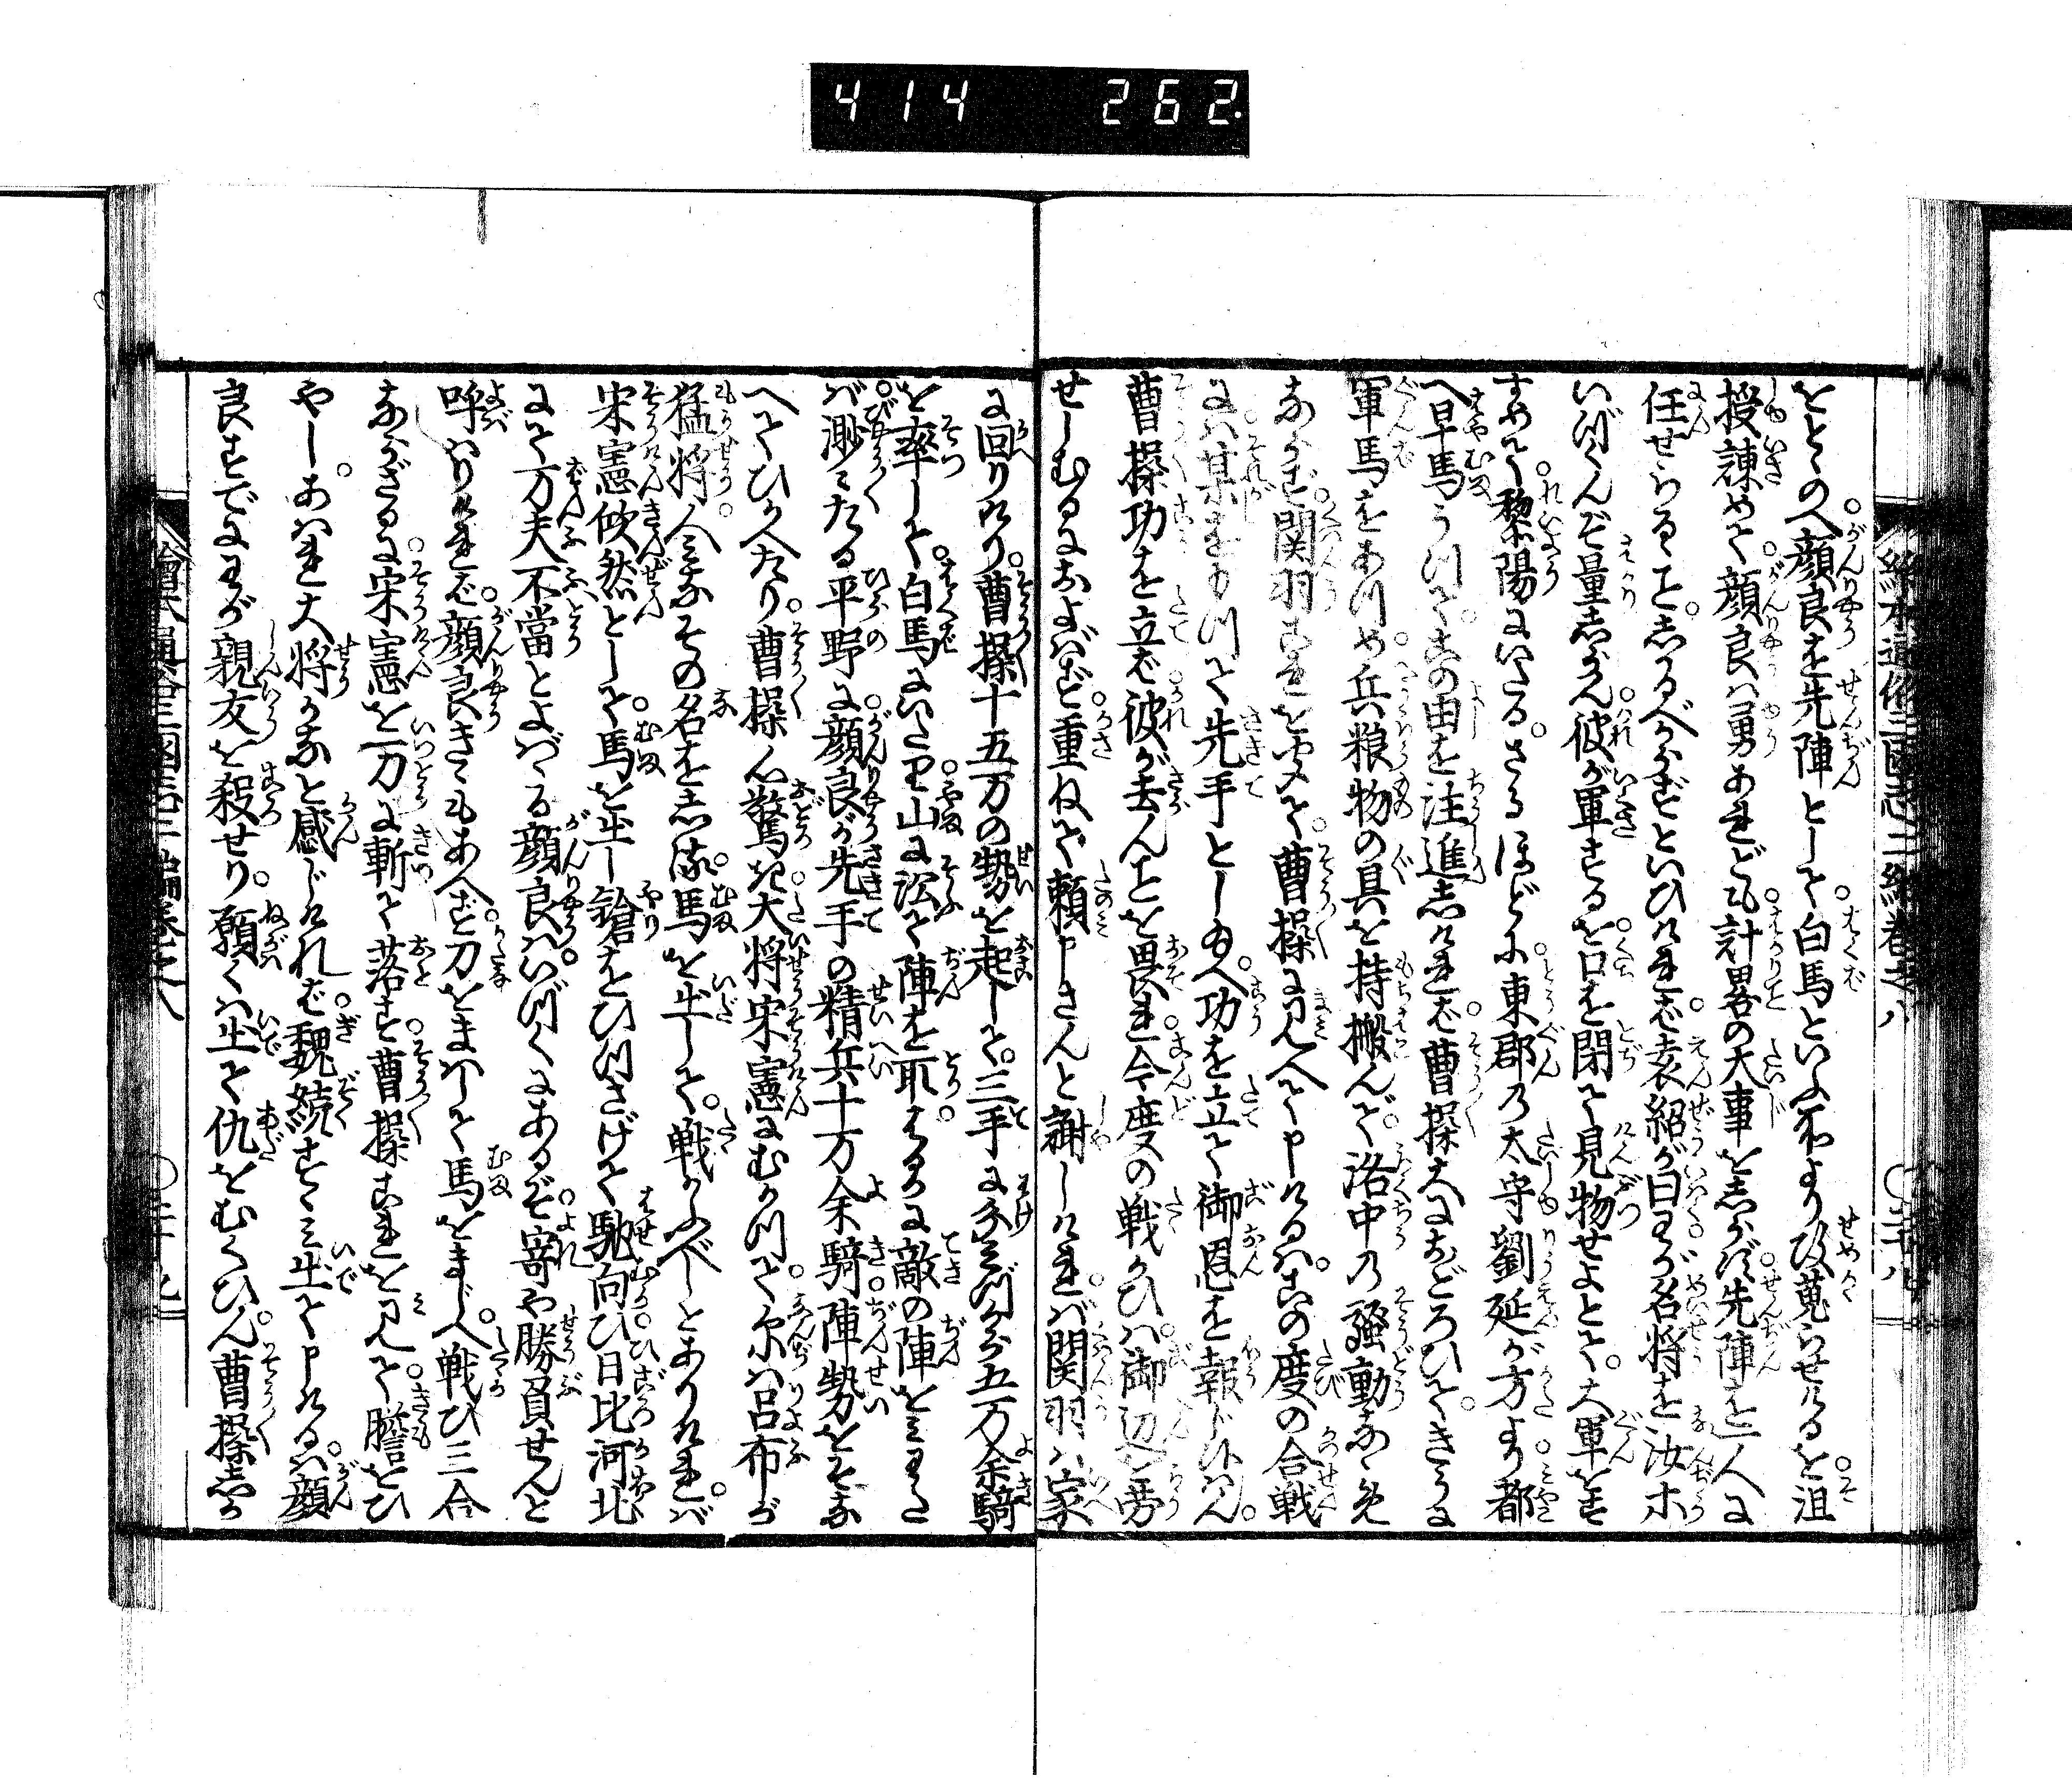 414 262.
絵本通俗三国志二編巻之八 ○二十八
をとゝのへ顔良を先陣として白馬といふ所より攻蒐らせけるを沮
授諌めて顔良は勇あれども計畧の大事をしらず先陣を一人に
任せらるゝことしかるべからずといひければ袁紹が曰わが名将を汝等
いづくんぞ量しらん彼が軍するを口を閉て見物せよとて大軍をす
すめて黎陽にいたるさるほどに東郡の太守劉延が方より都
へ早馬うつてこの由を注進しければ曹操大におどろひてきうに
軍馬をあつめ兵粮物の具を持搬んで洛中の騒動なゝめ
ならず関羽これを聞て曹操に見へて申けるはこの度の合戦
には某をもつて先手としたまへ功を立て御恩を報じ候はん
曹操功を立ば彼が去んことを畏れ今度の戦かひは御辺を労
せしむるにおよばず重ねて頼申さんと謝しければ関羽は家
に回りけり曹操十五万の勢を起して三手に分てみづから五万余騎
を率して白馬にいたり山に沿て陣を取はるかに敵の陣をみわたせ
ば渺々たる平野に顔良が先手の精兵十万余騎陣勢をそな
へてひかへたり曹操心驚き大将宋憲にむかつて尓は呂布が
猛将人みなその名をしる馬を出して戦かふべしとありければ
宋憲欣然として馬を出し鎗をひつさげて馳向ひ日比河北
にて万夫不當とよばゝる顔良はいづくにあるぞ寄や勝負せんと
呼はりければ顔良きゝもあへず刀をまはして馬をまじへ戦ひ三合
ならざるに宋憲を一刀に斬て落す曹操これを見て膽をひ
やしあはれ大将かなと感じければ魏続すゝみ出て申けるは顔
良すでにわが親友を殺せり願くは出て仇をむくひん曹操しか
絵本通俗三国志二編巻之八 ○二十九